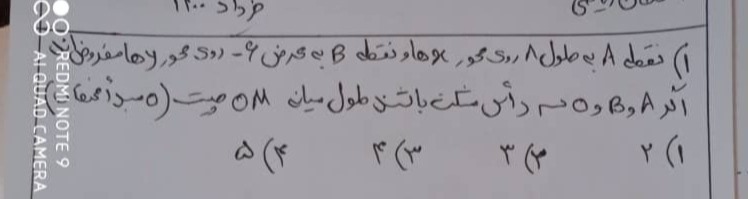 خرداد ۱۴۰۰
۱) نقطه A به طول ۸ روی محور xها و نقطه B به عرض ۶- روی محور yها مفروض‌اند
اگر A و B و O سه رأس مثلث باشند طول میانه OM چیست (O مبدأ مختصات)
۱) ۲ ۲) ۳ ۳) ۴ ۴) ۵
REDMI NOTE 9
AI QUAD CAMERA